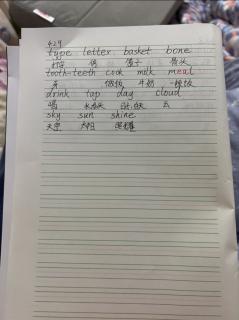 429
type letter basket bone
信 篮子 骨头
tooth-teeth cook milk meal
牙 做饭 牛奶 一顿饭
drink tap day cloud
喝 水龙头 日子,白天 云
sky sun shine
天空 太阳 照耀